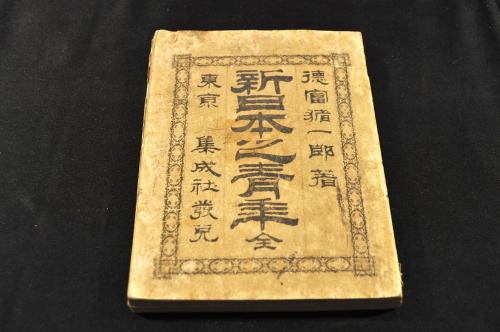 德富猪一郎著
新日本之青年 全
東京 集成社發兌